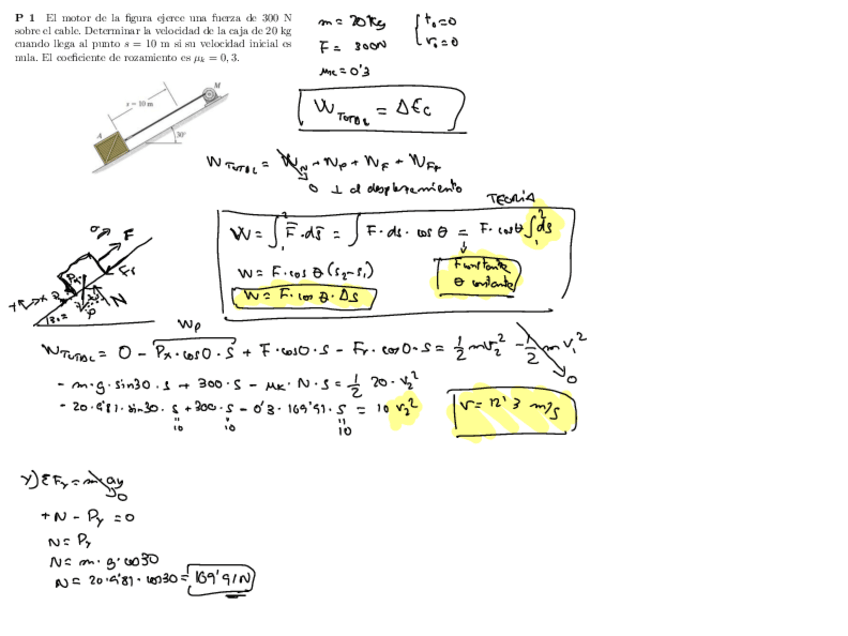 P 1 El motor de la figura ejerce una fuerza de 300 N
sobre el cable. Determinar la velocidad de la caja de 20 kg
cuando llega al punto s = 10 m si su velocidad inicial es
nula. El coeficiente de rozamiento es μk = 0, 3.
m = 20 kg
F = 300N
μk = 0'3
t₀ = 0
v₁ = 0
s = 10 m
M
A
30°
W TOTAL = ΔEc
W TOTAL = WN + WP + WF + WFr
0 ⊥ al desplazamiento
TEORÍA
W = ∫₁² F̄ · ds̄ = ∫ F · ds · cos θ = F · cosθ ∫₁² ds
W = F · cos θ (s₂ - s₁)
W = F · cos θ · Δs
F constante
θ constante
F
Fr
Px
N
30°
WP
W TOTAL = 0 - Px · cos0 · S + F · cos0 · S - Fr · cos0 · S = 1/2 mv₂² - 1/2 m v₁²
0
- m · g · sin30 · s + 300 · S - μk · N · S = 1/2 20 · v₂²
- 20 · 9'81 · sin30 · s + 300 · s - 0'3 · 169'91 · s = 10 v₂²
10 10 10
v = 12'3 m/s
y) ΣFy = m · ay
0
+N - Py = 0
N = Py
N = m · g · cos30
N = 20 · 9'81 · cos30 = 169'91N